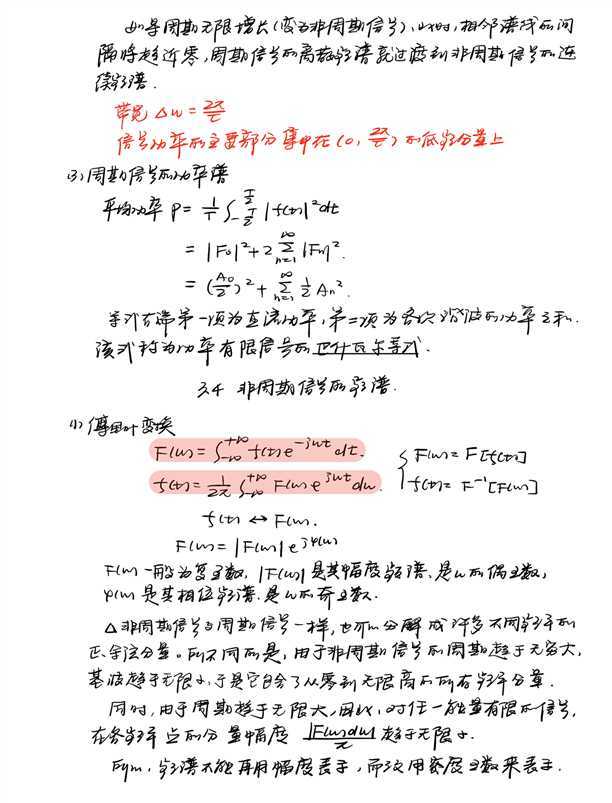 如果周期无限增长(变为非周期信号),此时,相邻谱线的间
隔将趋近零,周期信号的离散频谱就过渡到非周期信号的连
续频谱.
带宽 Δω = 2π/τ
信号功率的主要部分集中在(0, 2π/τ)的低频分量上
(3) 周期信号的功率谱
平均功率 P = 1/T ∫_{-T/2}^{T/2} |f(t)|² dt
= |F₀|² + 2 ∑_{n=1}^{∞} |Fₙ|².
= (A₀/2)² + ∑_{n=1}^{∞} 1/2 Aₙ².
等式右端第一项为直流功率,第二项为各次谐波的功率之和.
该式称为功率有限信号的巴什瓦尔等式.
3.4 非周期信号的频谱.
(1) 傅里叶变换
F(ω) = ∫_{-∞}^{+∞} f(t) e^{-jωt} dt. { F(ω) = F[f(t)]
f(t) = 1/2π ∫_{-∞}^{+∞} F(ω) e^{jωt} dω. f(t) = F⁻¹[F(ω)]
f(t) ↔ F(ω).
F(ω) = |F(ω)| e^{jφ(ω)}
F(ω)一般为复函数, |F(ω)| 是其幅度频谱,是ω的偶函数,
φ(ω)是其相位频谱,是ω的奇函数.
Δ 非周期信号与周期信号一样,也可以分解成许多不同频率的
正、余弦分量。所不同的是,由于非周期信号的周期趋于无穷大,
基波趋于无限小,于是它包含了从零到无限高的所有频率分量.
同时,由于周期趋于无限大,因此,对任一能量有限的信号,
在各频率点的分量幅度 |F(ω)dω|/π 趋于无限小.
所以,频谱不能再用幅度表示,而改用密度函数来表示.